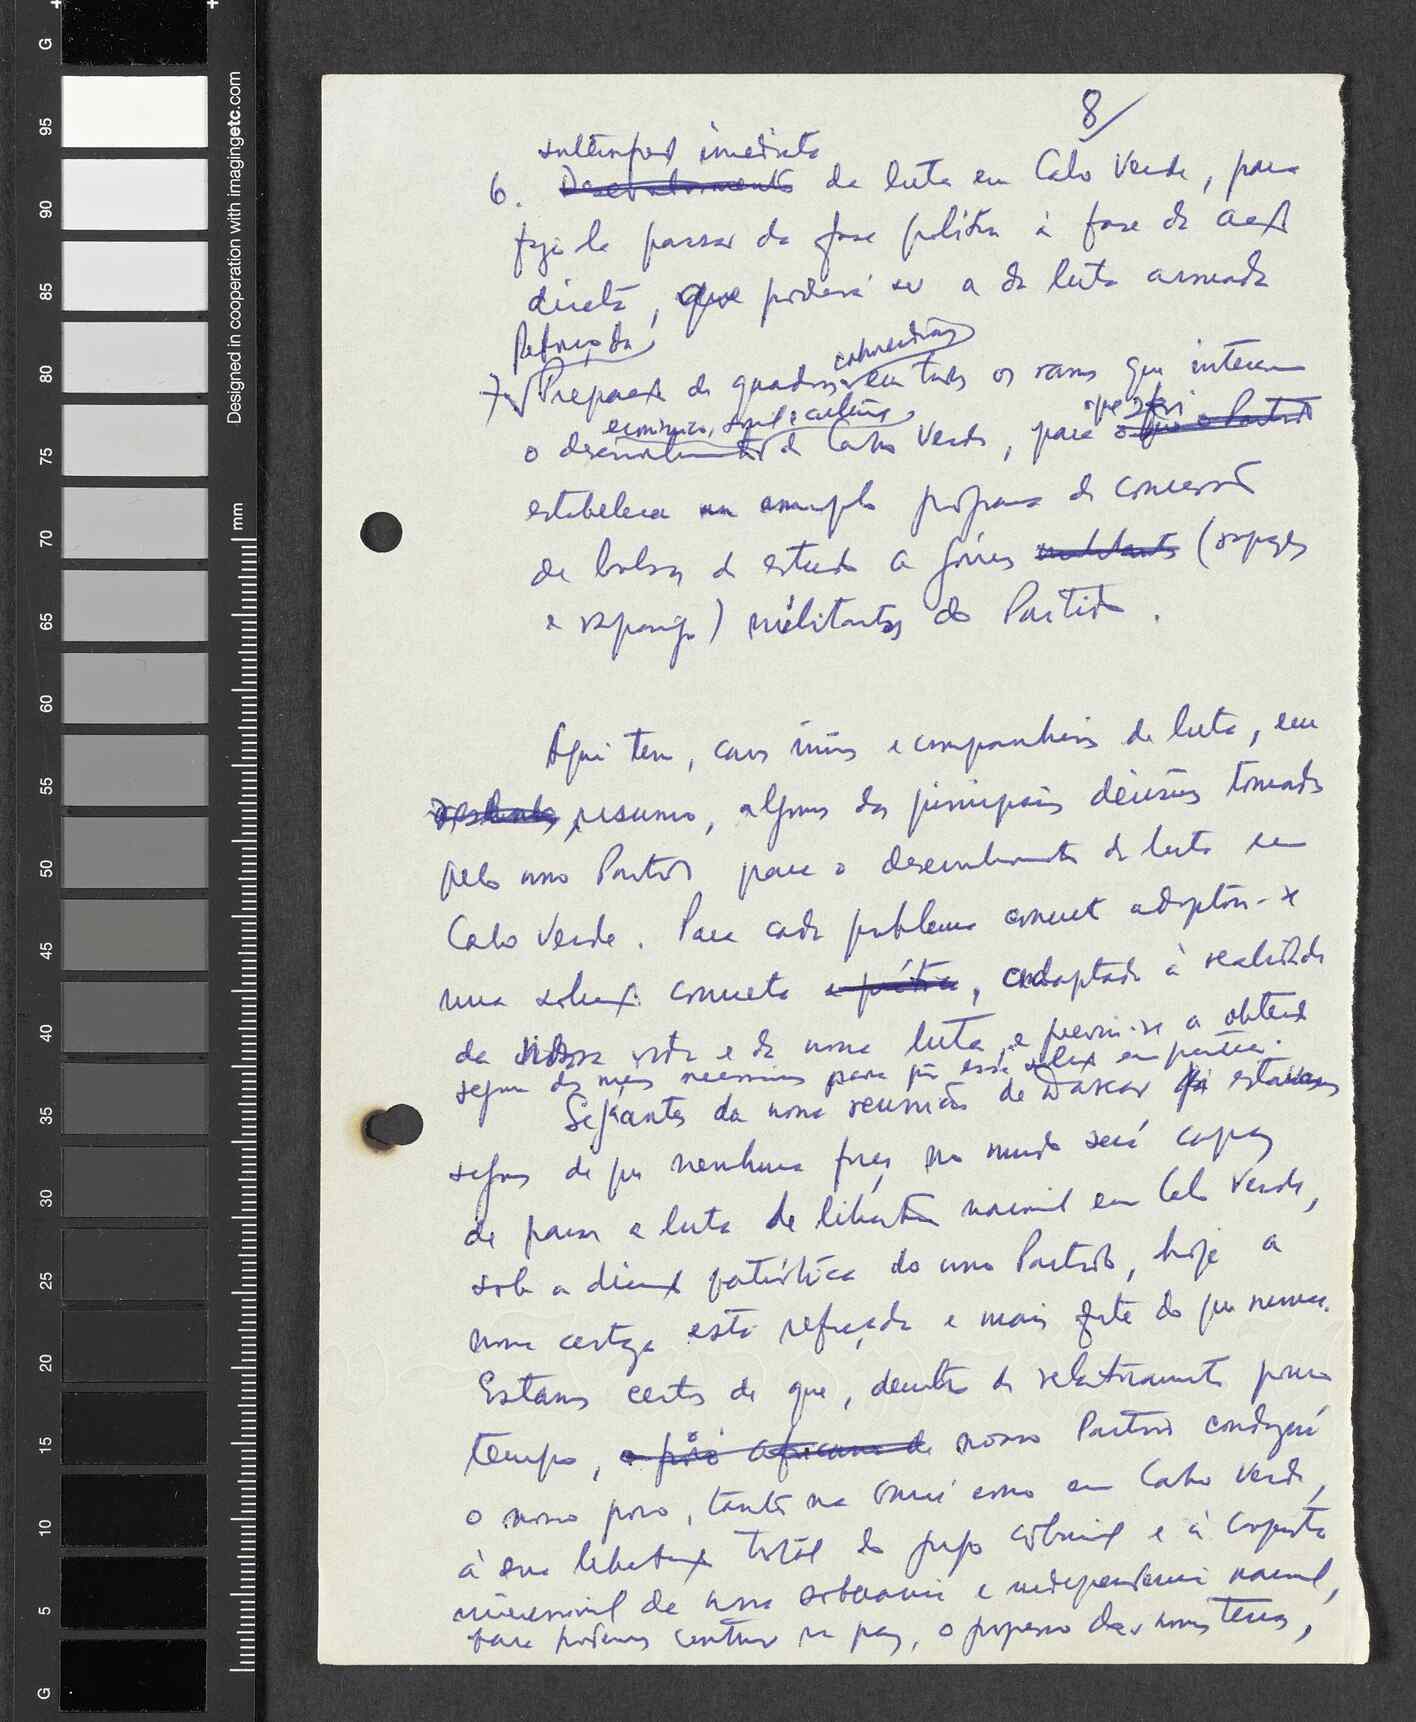 8/
imediata
6. Desenvolvimento da luta em Cabo Verde, para
fazê-la passar da fase política à fase da acção
directa, que poderá ser a da luta armada
Reforço da
caboverdianos
7. Preparação de quadros em todos os ramos que interessam
económico, social e cultural
o desenvolvimento de Cabo Verde, para o que o Partido
que foi
estabelecido um amplo programa de concessão
de bolsas de estudo a jovens militantes (rapazes
e raparigas) militantes do Partido.
Aqui tem, caros irmãos e companheiros de luta, em
resumo, algumas das principais decisões tomadas
pelo nosso Partido para o desenvolvimento da luta em
Cabo Verde. Para cada problema concreto adoptou-se
uma solução concreta e prática, adaptada à realidade
da nossa vida e da nossa luta, e previu-se a obtenção
segura dos meios necessários para pôr essa solução em prática.
Se já antes da nossa reunião de Dakar estávamos
seguros de que nenhuma força no mundo será capaz
de parar a luta de libertação nacional em Cabo Verde,
sob a direcção patriótica do nosso Partido, hoje a
nossa certeza está reforçada e mais forte do que nunca.
Estamos certos de que, dentro de relativamente pouco
tempo, o povo africano da nosso Partido conduzirá
o nosso povo, tanto na Guiné como em Cabo Verde,
à sua libertação total do jugo colonial e à conquista
irreversível da nossa soberania e independência nacional,
para podermos construir na paz, o progresso das nossas terras,
Designed in cooperation with imagingetc.com
mm
G
95
90
85
80
75
70
65
60
55
50
45
40
35
30
25
20
15
10
5
G